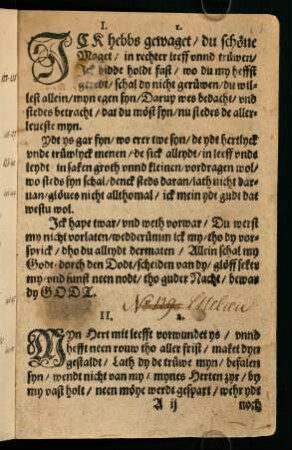 I.
ICK hebbs gewaget / du schöne
Maget / in rechter leeff vnnd trüwen /
Ick bidde holdt fast / wo du my heffst
geredt / schal dy nicht gerüwen / du wil-
lest allein / myn egen syn / Darup wes bedacht / vnd
stedes betracht / dat du möst syn / nu stedes de aller-
leueste myn.
Ydt ys gar fyn / wo erer twe syn / de ydt hertlyck
vnde trüwlyck menen / de sick alltydt / in leeff vnds
leydt / in saken groth vnnd kleinen / vordragen wol /
wo stedes syn schal / denck steds daran / lath nicht dar-
uan / glöues nicht allthomal / ick mein ydt gudt dat
westu wol.
Ick hape twar / vnd weth vorwar / Du werst
my nicht vorlaten / wedderümm ick my / tho dy vor-
sprick / dho du alltydt dermaten / Allein schal my
Godt / dorch den Dodt / scheiden van dy / glöff seker
my / vnd sunst neen nodt / tho guder Nacht / bewar
dy GODT.
II.
2.
MYn Hert mit leefft vorwundet ys / vnnd
hefft neen rouw tho aller frist / maket dyne
gestaldt / Lath dy de trüwe myn / befalen
syn / wendt nicht van my / mynes Herten zyr / by
my vast holt / neen möye werdt gespart / wehr ydt
A ij
noch